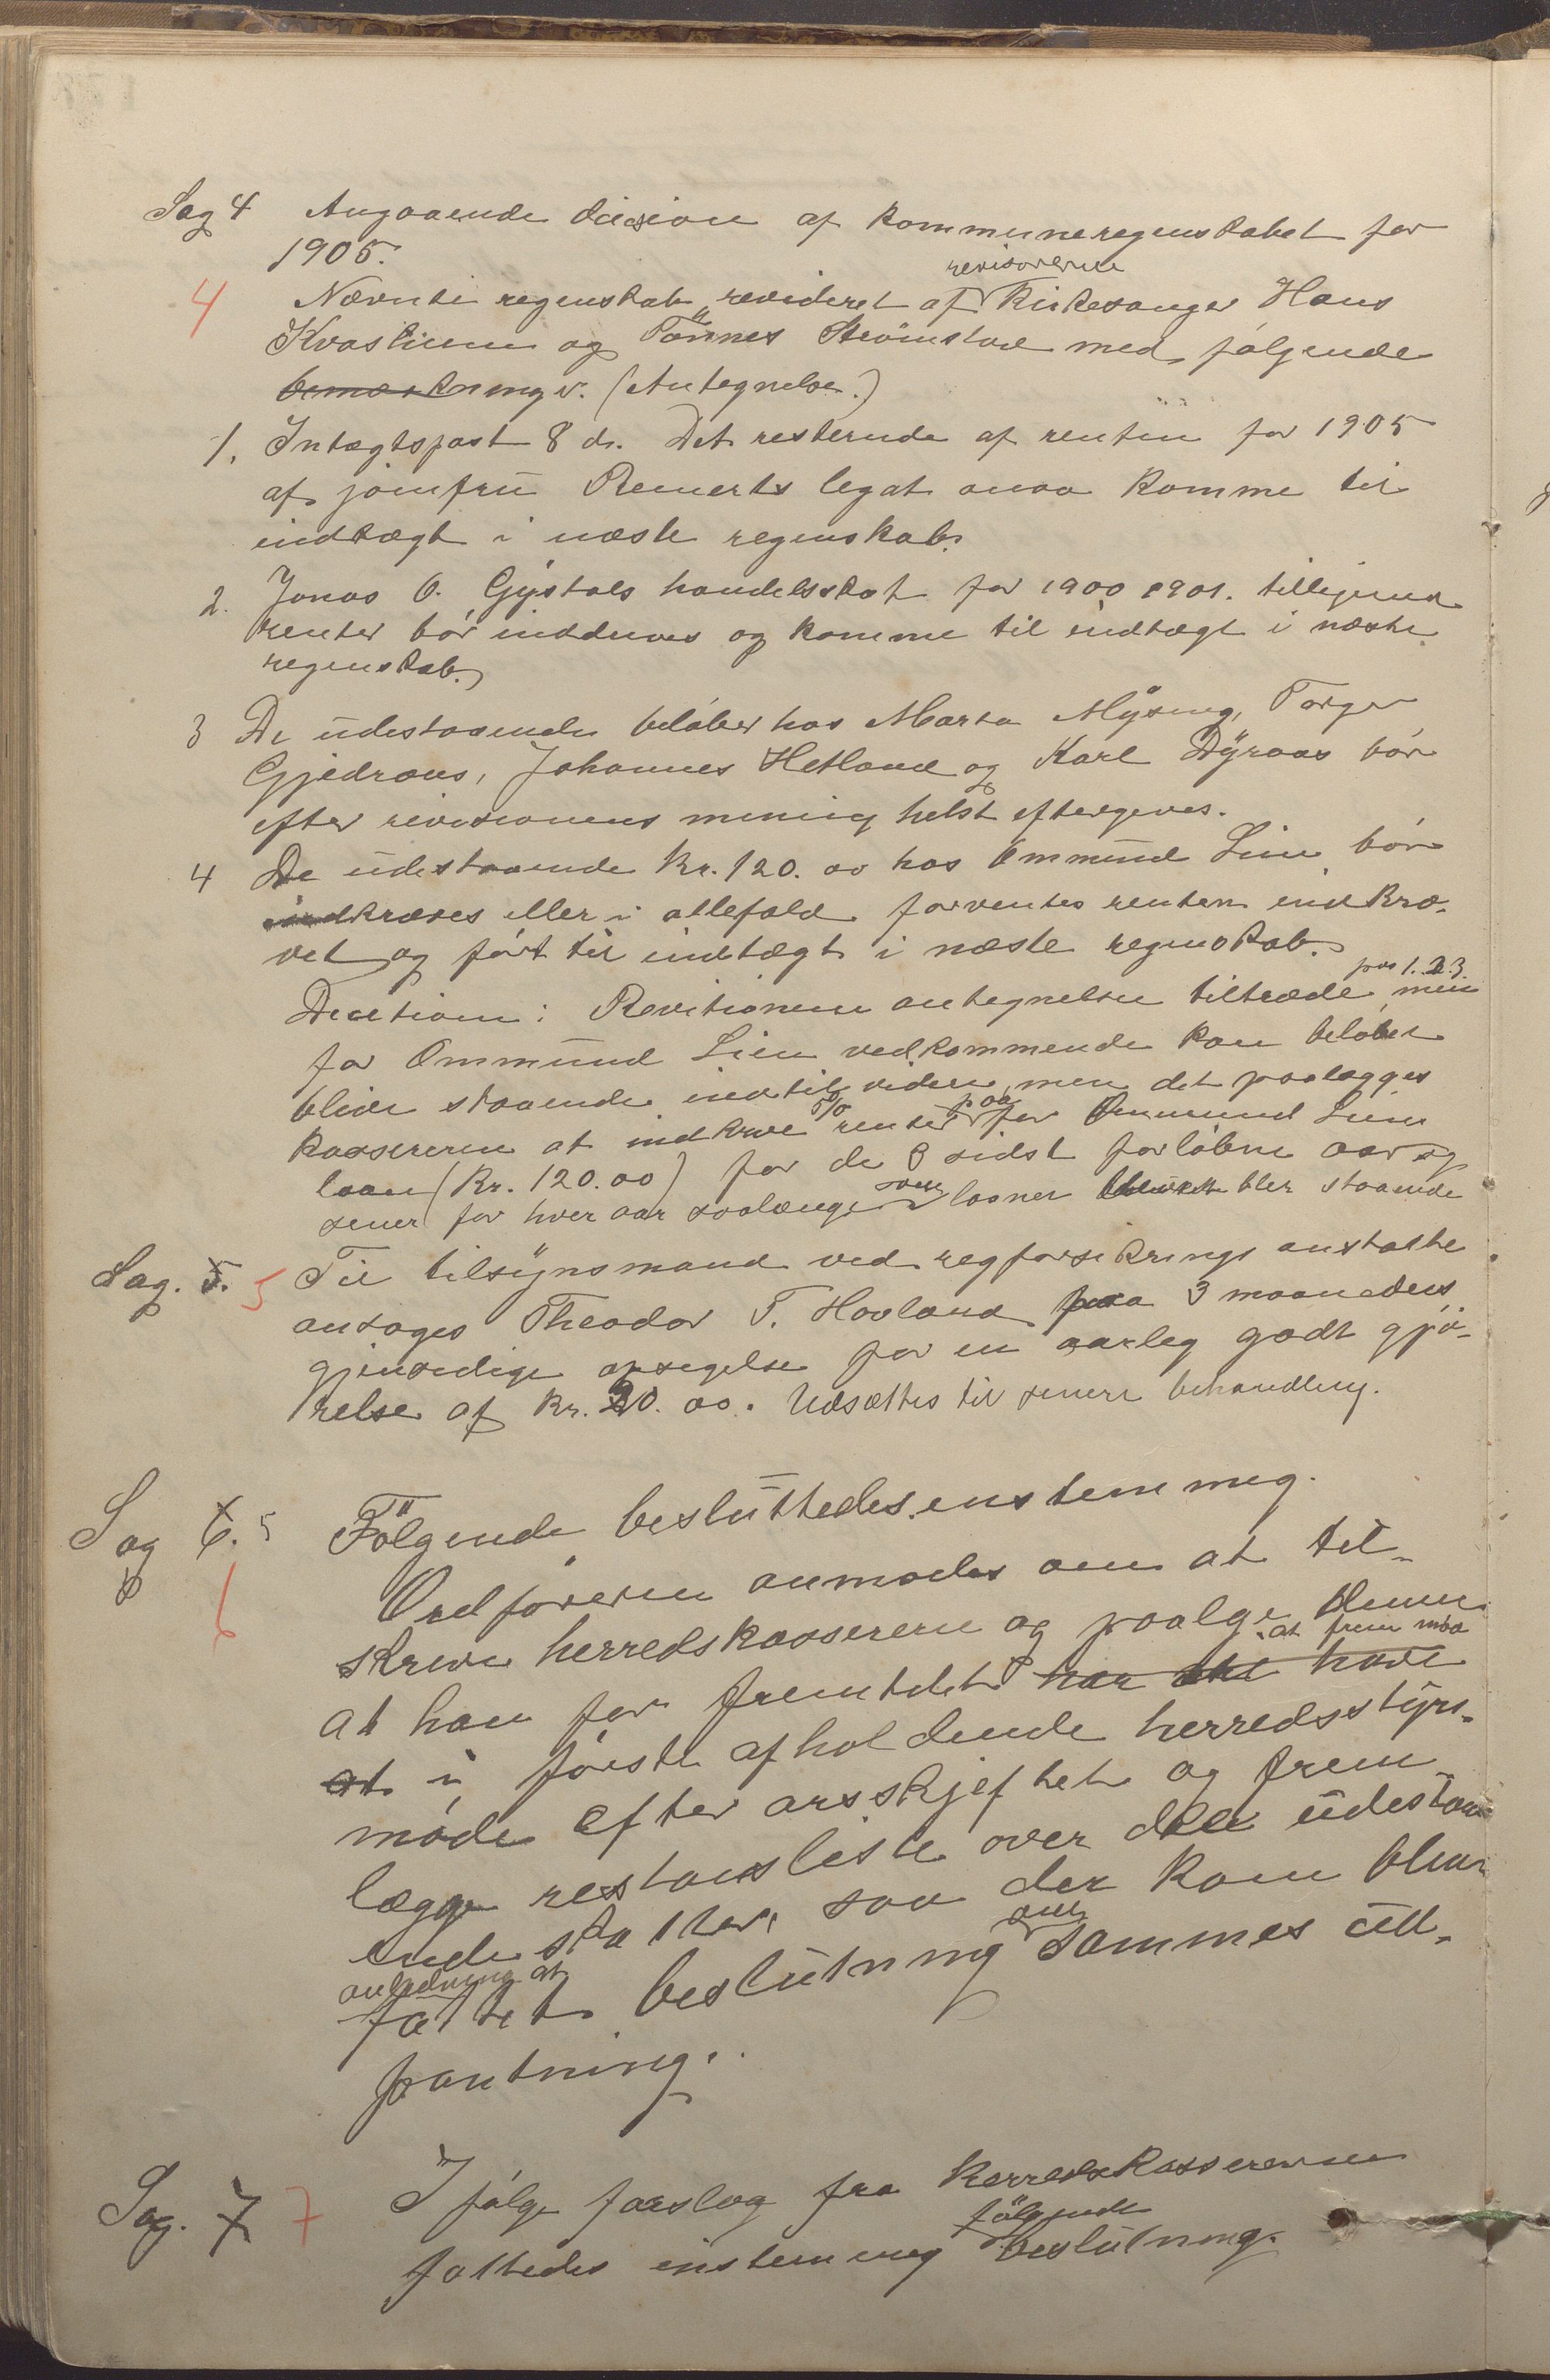 Sag 4 Angaaende dicision af kommuneregenskabet for
1905.
revisorerne
4 Nævnte regenskab revideret af Kirkesanger Hans
og Tönnes med følgende
bemærkninger. (Antegnelse.)
1. Intægtspost 8 d. Det resterende af renten for 1905
af jomfru Reinerts legat maa komme til
indtægt i næste regenskab.
2. Jonas O. Gystøls handelsskat for 1900 1901. tilligemed
renter bör inddrives og komme til indtægt i næste
regenskab.
3 De udestaaende beløber hos Marta Mysing, Torger
Gjedraas, Johannes Hetland og Karl Dyraas bör
efter revisionens mening helst eftergives.
4 De udestaaende Kr. 120.00 hos Ommund Lien bör
indkræves eller i allefald forventes renten indkræ-
vet og fört til indtægt i næste regenskab.
pos 1. 2. 3.
Decition: Revitionens antegnelser tiltræde, men
for Ommund Lien vedkommende kan beløbet
blive staaende indtil videre, men det paalægges
5% paa
kassereren at indkræve renter for Ommund Liens
laan (Kr. 120.00) for de 3 sidst forløbne aar og
som
senere for hver aar saalænge laanet blir staaende
Sag. 5. 5 Til tilsynsmand ved anstalte
antages Theodor T. Hovland paa 3 maaneders
gjensidige opsigelse for en aarleg godt gjö-
relse af Kr. 20.00. Udsættes til senere behandling.
Sag 6. 5 Fölgende besluttedes enstemmeg.
6 Ordföreren anmodes om at til-
skrive herredskassereren og paalge denne
at frem møa
at han for fremtdet har at have
at i förste afholdende herredsstyre-
møde efter arsskjeftet og frem-
lægge restansliste over de udestaa-
ende skatter, saa der kan blive
anledning at om
fattet beslutning sammes ud-
pantning.
Sag. 7 7 I følge forslag fra Herredskassereren
fölgende
fattedes enstemmeg beslutning.